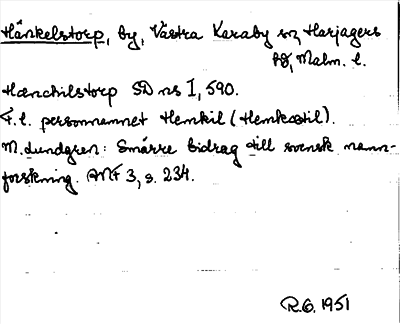 Hänkelstorp, by, Västra Karaby sn, Harjagers
hd, Malm. l.
Hænchilstorp SD ns I, 590.
F. l. personnamnet Hemkil (Hemkætil).
M. Lundgren: Smärre bidrag till svensk namn-
forskning. ANF 3, s. 234.
R.G. 1951